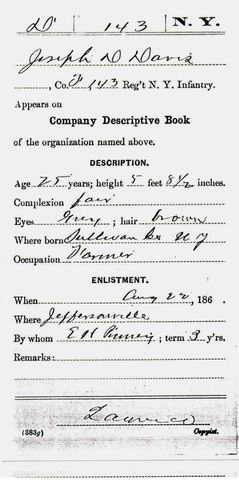 D 143 N. Y.
Joseph D Davis
, Co. D, 143 Reg't N. Y. Infantry.
Appears on
Company Descriptive Book
of the organization named above.
DESCRIPTION.
Age 25 years; height 5 feet 8 1/2 inches.
Complexion fair
Eyes Grey; hair brown
Where born Sullivan Co N Y
Occupation Farmer
ENLISTMENT.
When Aug 22, 186 .
Where Jeffersonville
By whom E H ; term 3 y'rs.
Remarks:
(383g) Copyist.